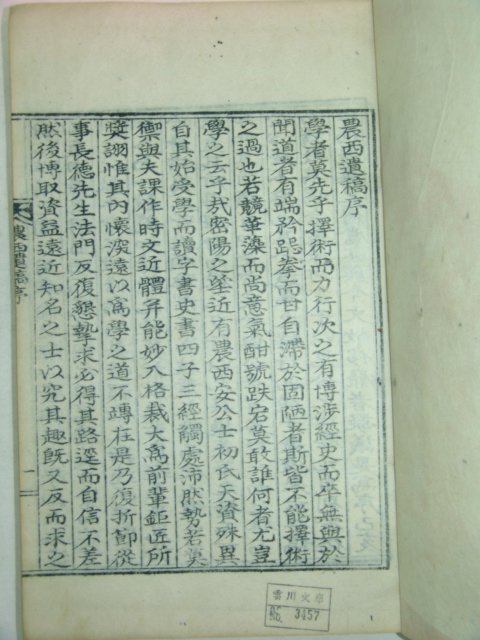 農西遺稿序
學者莫先乎擇術而力行次之有博涉經史而卒無與於
聞道者有端矜跽拳而甘自滯於固陋者斯皆不能擇術
之過也若競華藻而尚意氣酣號跌宕莫敢誰何者尤豈
學之云乎哉密陽之治近有農西安公士初氏天資殊異
自其始受學而讀字書史書四子三經觸處沛然勢若莫
禦與夫課作時文近體幷能妙入格裁大爲前輩鉅匠所
獎詡惟其內懷深遠以爲學之道不專在是乃復折節從
事長德先生法門反復懇摯求必得其路逕而自信不差
然後博取資益遠近知名之士以究其趣旣又反而求之
農西遺稿序
一
雲川文庫
3457